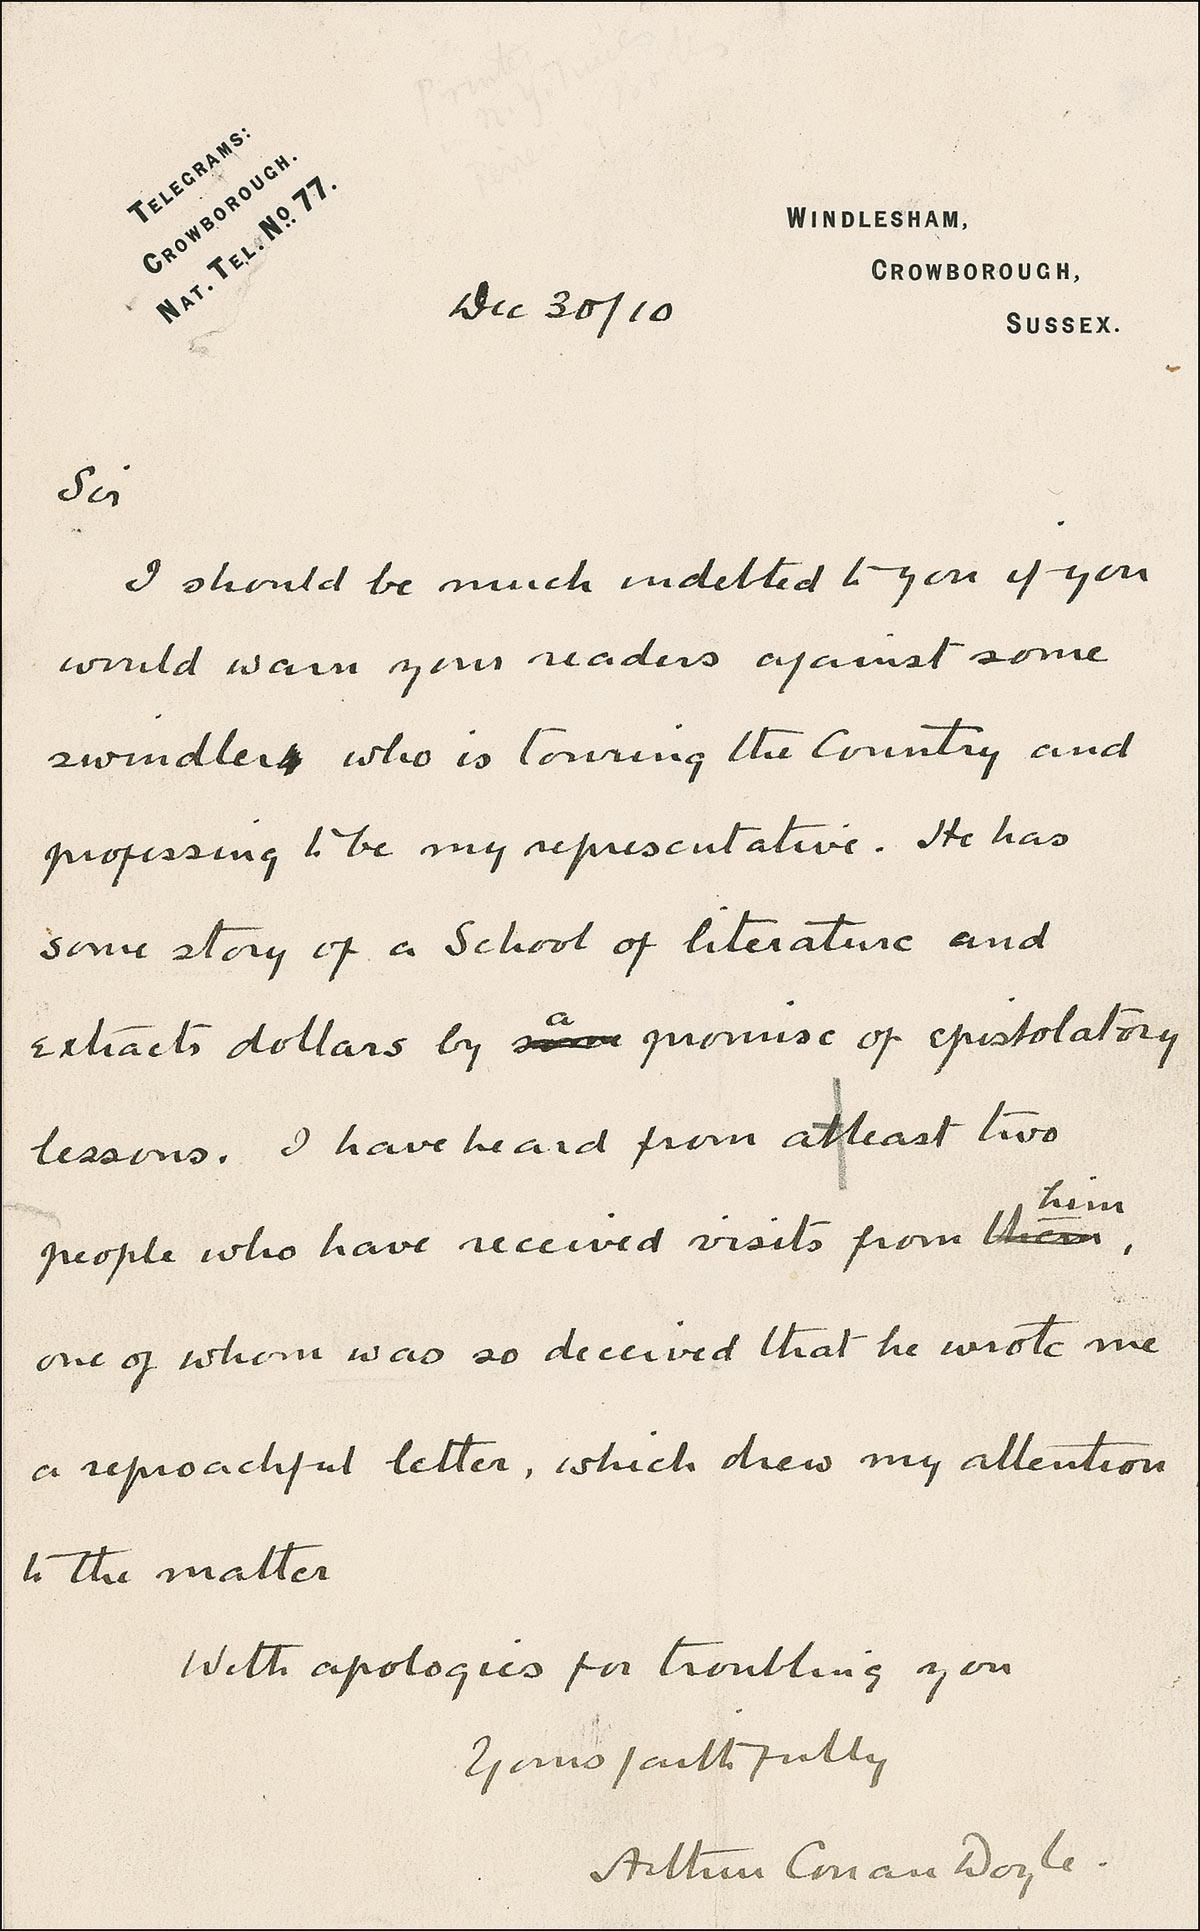 TELEGRAMS:
CROWBOROUGH.
NAT. TEL. No. 77.
WINDLESHAM,
CROWBOROUGH,
SUSSEX.
Dec 30/10
Sir
I should be much indebted to you if you
would warn your readers against some
swindler who is touring the Country and
professing to be my representative. He has
some story of a School of literature and
extracts dollars by a promise of epistolatory
lessons. I have heard from at least two
people who have received visits from him,
one of whom was so deceived that he wrote me
a reproachful letter, which drew my attention
to the matter
With apologies for troubling you
Yours faithfully
Arthur Conan Doyle.